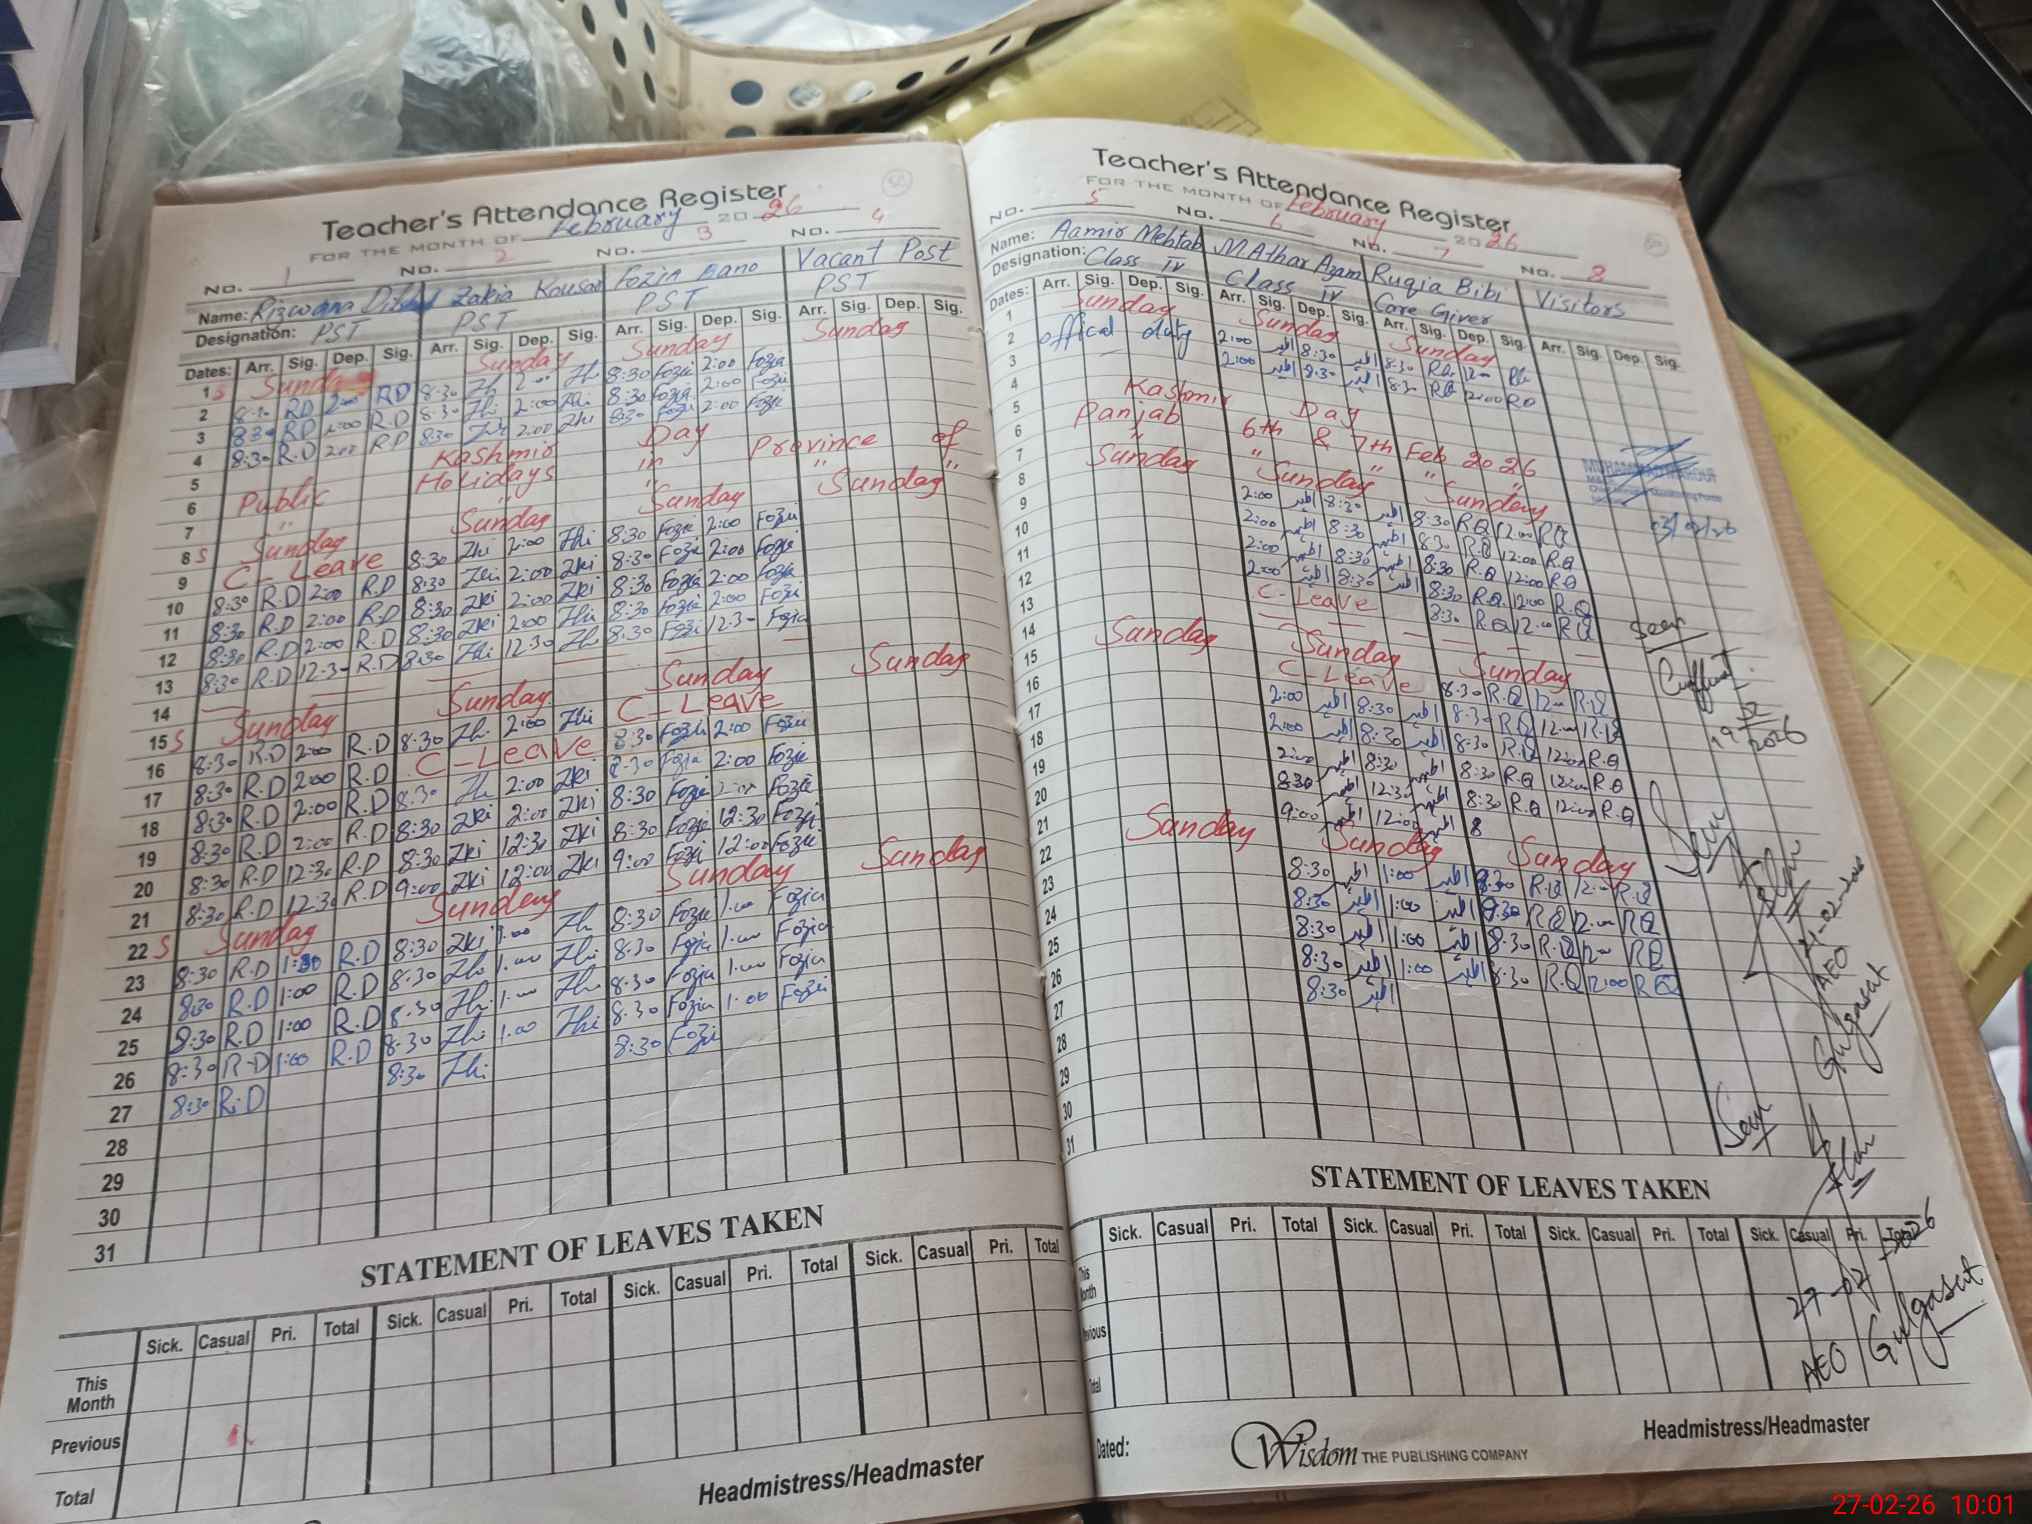 Teacher's Attendance Register
FOR THE MONTH OF February 2026
No. 1 No. 2 No. 3 No. 4
Name: Rizwana Zakia Kousar Fozia Bano Vacant Post
Designation: PST PST PST PST
Dates: Arr. Sig. Dep. Sig. Arr. Sig. Dep. Sig. Arr. Sig. Dep. Sig. Arr. Sig. Dep. Sig.
1 S Sunday Sunday Sunday Sunday
2 8:30 RD 2:00 RD 8:30 Zki 2:00 Zki 8:30 Fozia 2:00 Fozia
3 8:30 RD 2:00 R.D 8:30 Zki 2:00 Zki 8:30 Fozia 2:00 Fozia
4 8:30 R.D 2:00 R.D 8:30 Zki 2:00 Zki 8:30 Fozia 2:00 Fozia
5 Kashmir Day
6 Public Holidays in Province of
7 " " " " "
8 S Sunday Sunday Sunday Sunday
9 C-Leave 8:30 Zki 2:00 Zki 8:30 Fozia 2:00 Fozia
10 8:30 R.D 2:00 R.D 8:30 Zki 2:00 Zki 8:30 Fozia 2:00 Fozia
11 8:30 R.D 2:00 R.D 8:30 Zki 2:00 Zki 8:30 Fozia 2:00 Fozia
12 8:30 R.D 2:00 R.D 8:30 Zki 2:00 Zki 8:30 Fozia 2:00 Fozia
13 8:30 R.D 12:30 R.D 8:30 Zki 12:30 Zki 8:30 Fozia 12:30 Fozia
14
15 S Sunday Sunday Sunday Sunday
16 8:30 R.D 2:00 R.D 8:30 Zki 2:00 Zki C-Leave
17 8:30 R.D 2:00 R.D C-Leave 8:30 Fozia 2:00 Fozia
18 8:30 R.D 2:00 R.D 8:30 Zki 2:00 Zki 8:30 Fozia 2:00 Fozia
19 8:30 R.D 2:00 R.D 8:30 Zki 2:00 Zki 8:30 Fozia 2:00 Fozia
20 8:30 R.D 12:30 R.D 8:30 Zki 12:30 Zki 8:30 Fozia 12:30 Fozia
21 8:30 R.D 12:30 R.D 9:00 Zki 12:00 Zki 9:00 Fozia 12:00 Fozia
22 S Sunday Sunday Sunday Sunday
23 8:30 R.D R.D 8:30 Zki 1:00 Zki 8:30 Fozia 1:00 Fozia
24 8:30 R.D 1:00 R.D 8:30 Zki 1:00 Zki 8:30 Fozia 1:00 Fozia
25 8:30 R.D 1:00 R.D 8:30 Zki 1:00 Zki 8:30 Fozia 1:00 Fozia
26 8:30 R.D 1:00 R.D 8:30 Zki 1:00 Zki 8:30 Fozia 1:00 Fozia
27 8:30 R.D 8:30 Zki 8:30 Fozia
28
29
30
31
STATEMENT OF LEAVES TAKEN
Sick. Casual Pri. Total Sick. Casual Pri. Total Sick. Casual Pri. Total Sick. Casual Pri. Total
This Month
Previous 1
Total
Headmistress/Headmaster
Teacher's Attendance Register
FOR THE MONTH OF February 2026
No. 5 No. 6 No. 7 No. 8
Name: Aamir Mehtab M Athar Azam Ruqia Bibi Visitors
Designation: Class IV Class IV Care Giver
Dates: Arr. Sig. Dep. Sig. Arr. Sig. Dep. Sig. Arr. Sig. Dep. Sig. Arr. Sig. Dep. Sig.
1 Sunday Sunday Sunday
2 offical duty 2:00 اطہر 8:30 اطہر 8:30 RQ 12:00 RQ
3 2:00 اطہر 8:30 اطہر 8:30 RQ 12:00 RQ
4
5 Kashmir Day
6 Panjab 6th & 7th Feb 2026
7 " " " "
8 Sunday Sunday Sunday
9 2:00 اطہر 8:30 اطہر 8:30 R.Q 12:00 R.Q
10 2:00 اطہر 8:30 اطہر 8:30 R.Q 12:00 R.Q
11 2:00 اطہر 8:30 اطہر 8:30 R.Q 12:00 R.Q
12 2:00 اطہر 8:30 اطہر 8:30 R.Q 12:00 R.Q
13 C-Leave 8:30 R.Q 12:00 R.Q
14
15 Sunday Sunday Sunday
16 C-Leave 8:30 R.Q 12:00 R.Q
17 2:00 اطہر 8:30 اطہر 8:30 R.Q 12:00 R.Q
18 2:00 اطہر 8:30 اطہر 8:30 R.Q 12:00 R.Q
19 2:00 اطہر 8:30 اطہر 8:30 R.Q 12:00 R.Q
20 8:30 اطہر 12:30 اطہر 8:30 R.Q 12:00 R.Q
21 9:00 اطہر 12:00 اطہر 8
22 Sunday Sunday Sunday
23 8:30 اطہر 1:00 اطہر 8:30 R.Q 12:00 R.Q
24 8:30 اطہر 1:00 اطہر 8:30 RQ 12:00 RQ
25 8:30 اطہر 1:00 اطہر 8:30 R.Q 12:00 RQ
26 8:30 اطہر 1:00 اطہر 8:30 R.Q 12:00 RQ
27 8:30 اطہر
28
29
30
31
Seen
19/2/2026
Seen
21-02-2026
AEO
Gulgasat
Seen
27-02-2026
AEO Gulgasat
STATEMENT OF LEAVES TAKEN
Sick. Casual Pri. Total Sick. Casual Pri. Total Sick. Casual Pri. Total Sick. Casual Pri. Total
Dated:
Wisdom THE PUBLISHING COMPANY
Headmistress/Headmaster
27-02-26 10:01